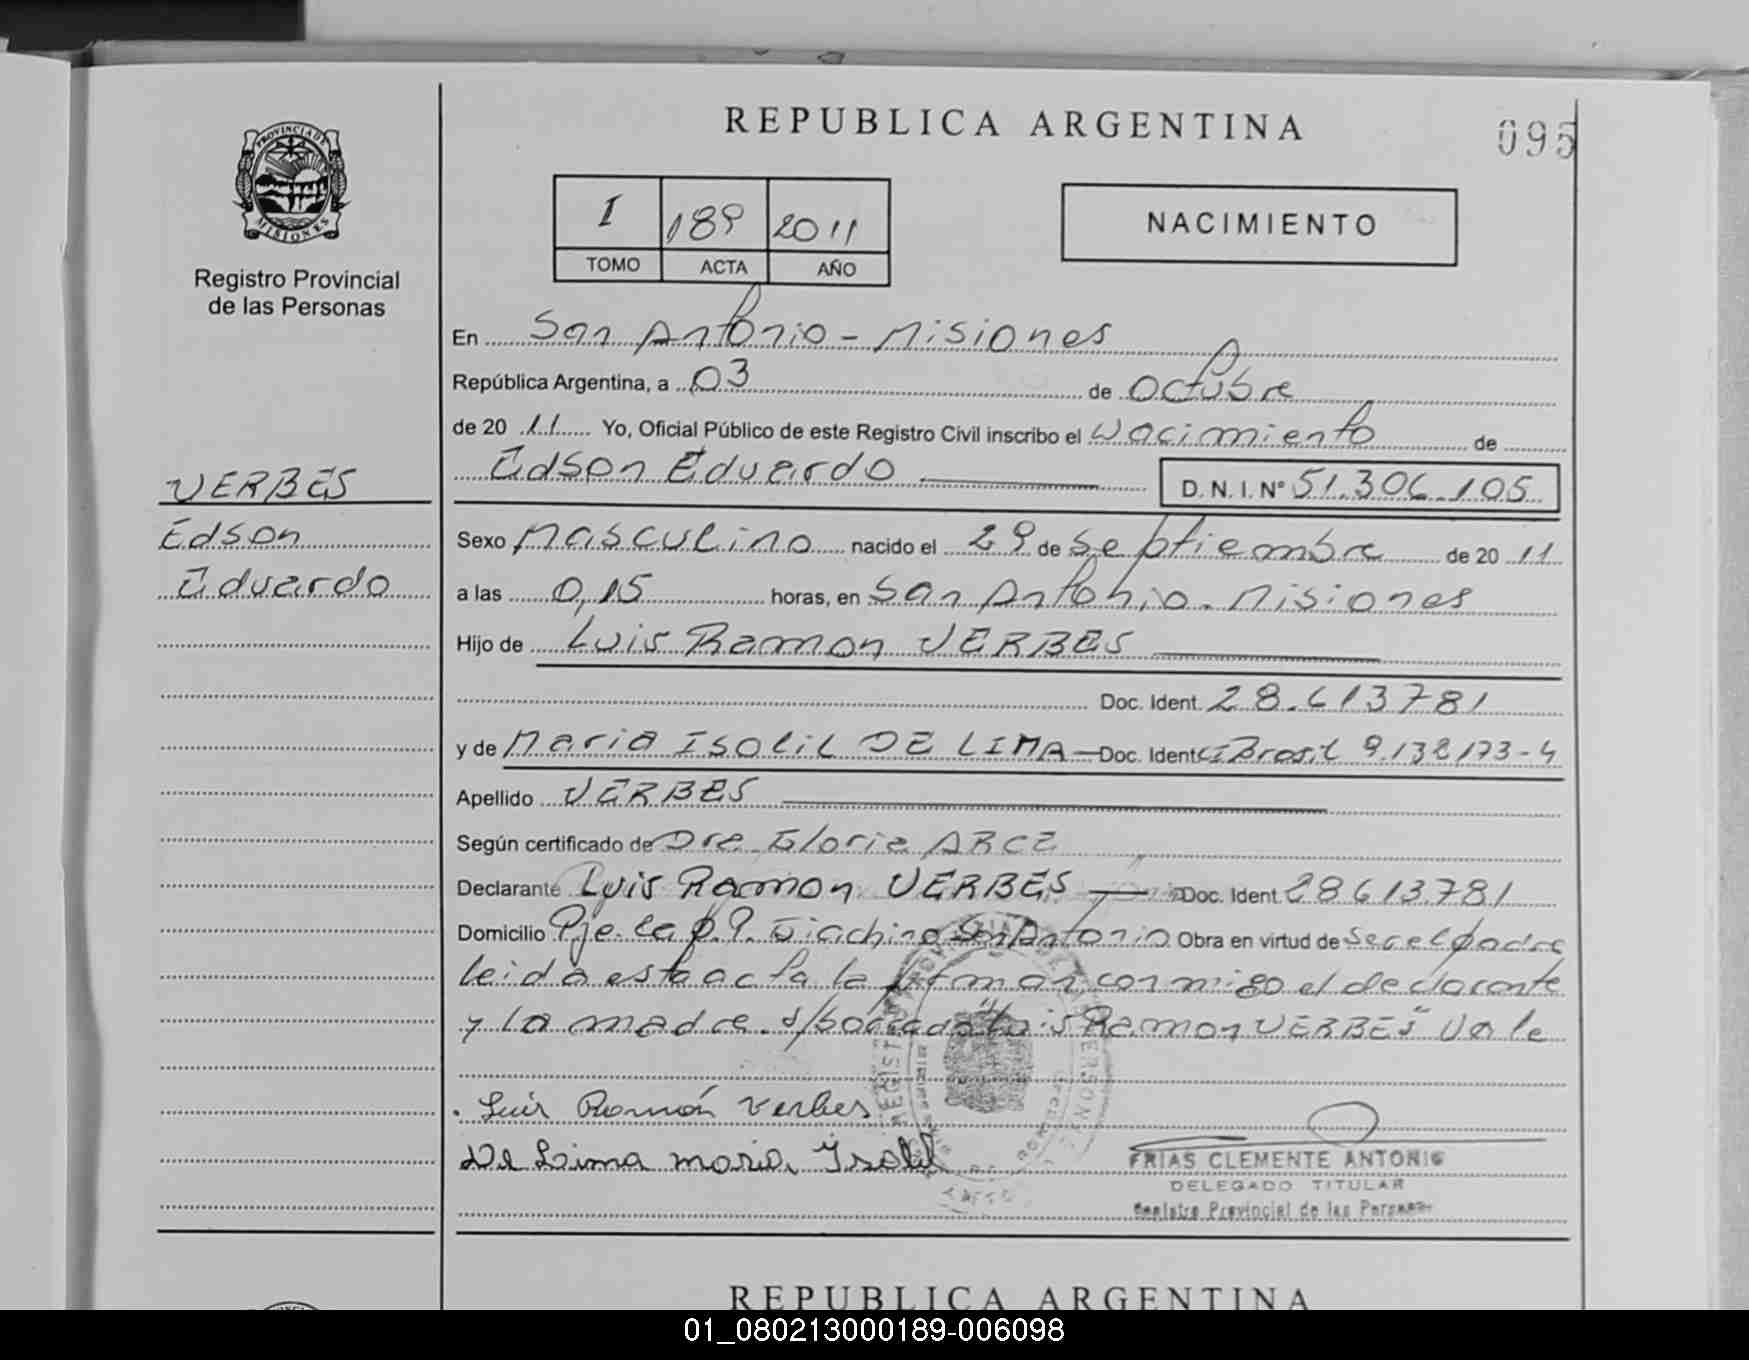 REPUBLICA ARGENTINA
095
PROVINCIA DE
MISIONES
Registro Provincial
de las Personas
I 189 2011
TOMO ACTA AÑO
NACIMIENTO
En San Antonio - Misiones
República Argentina, a 03 de Octubre
de 20 11 Yo, Oficial Público de este Registro Civil inscribo el Nacimiento de
Edson Eduardo D.N.I. Nº 51.306.105
VERBES
Edson
Eduardo
Sexo Masculino nacido el 29 de Septiembre de 20 11
a las 0,15 horas, en San Antonio. Misiones
Hijo de Luis Ramon VERBES
Doc. Ident. 28.613781
y de Maria Isolil DE LIMA Doc. Ident CI Brasil 9.132173-4
Apellido VERBES
Según certificado de Dra. Gloria ARCE
Declarante Luis Ramon VERBES Doc. Ident. 28613.781
Domicilio Pje. La P.P. Giachino San Antonio Obra en virtud de Ser el padre
leida esta acta la firman conmigo el declarante
y la madre. s/borrado "Luis Ramon VERBES" Vale
Luis Ramón Verbes
De Lima maria Isolil
FRIAS CLEMENTE ANTONIO
DELEGADO TITULAR
Registro Provincial de las Personas
REPUBLICA ARGENTINA
01_080213000189-006098